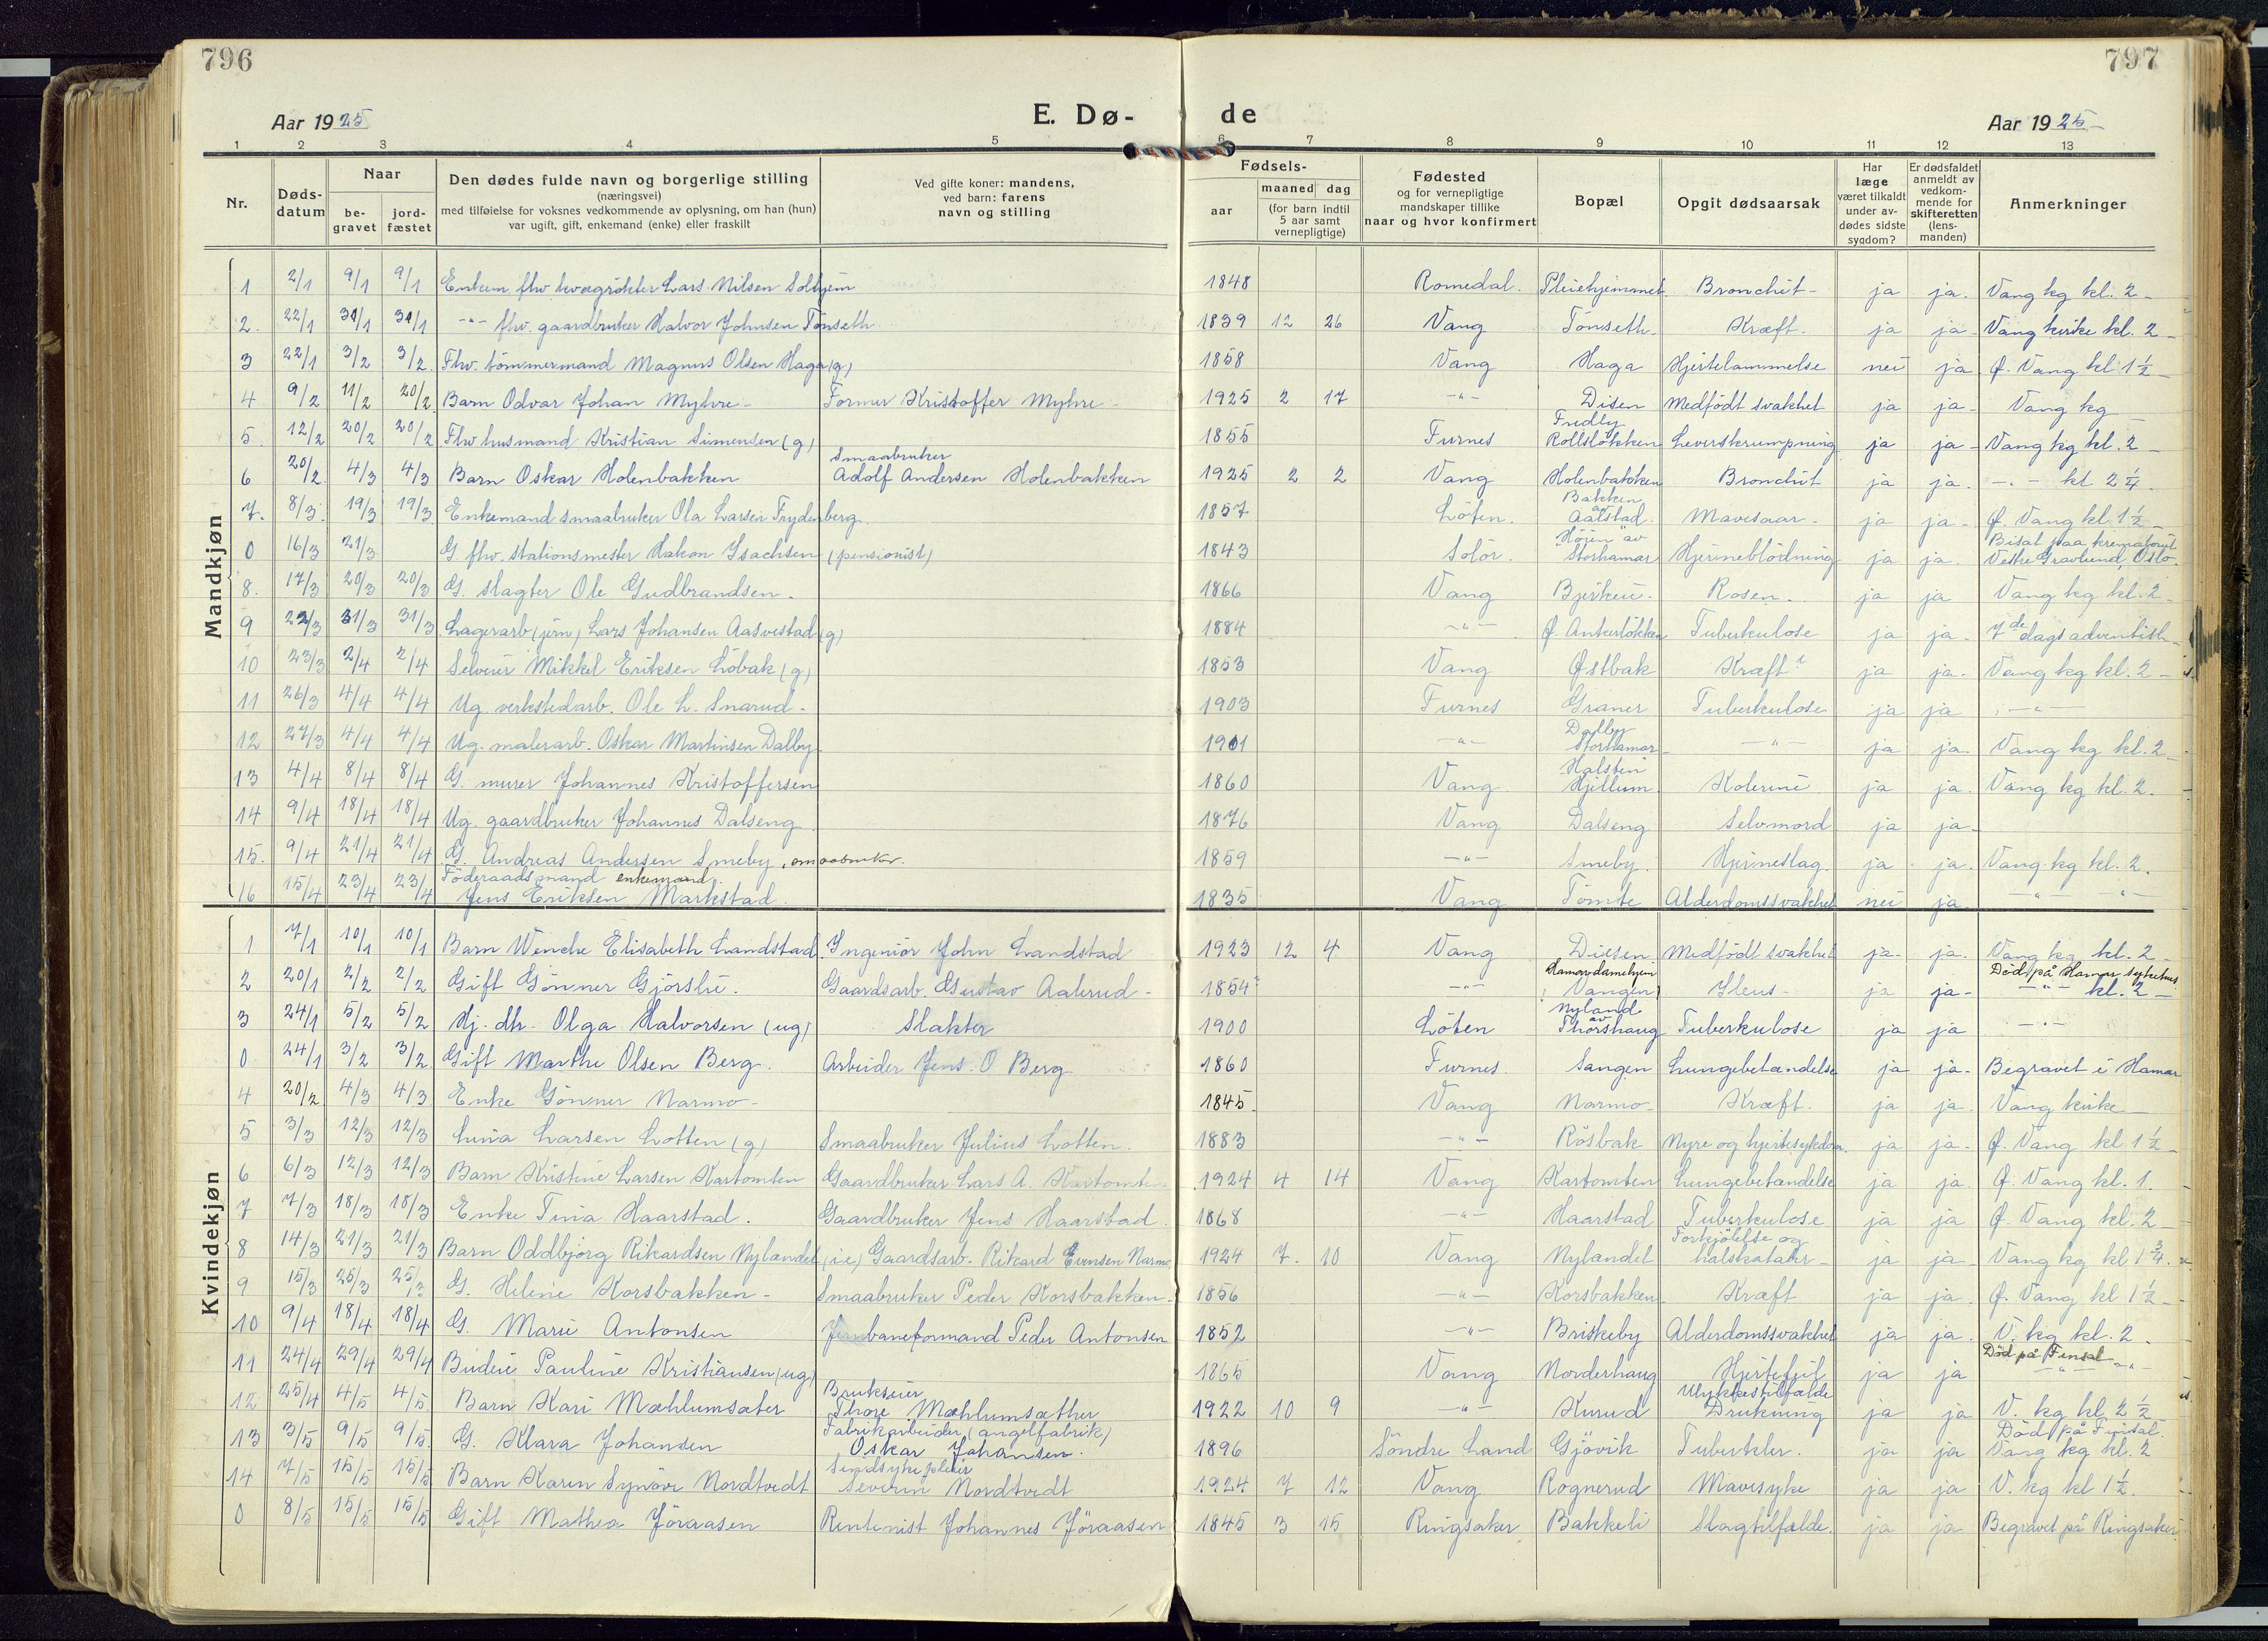 796
797
Aar 1925
E. Dø-
de
Aar 1925
1 2 3 4 5 6 7 8 9 10 11 12 13
Nr.
Døds-datum
Naar
be-gravet
jord-fæstet
Den dødes fulde navn og borgerlige stilling
(næringsvei)
med tilføielse for voksnes vedkommende av oplysning, om han (hun)
var ugift, gift, enkemand (enke) eller fraskilt
Ved gifte koner: mandens,
ved barn: farens
navn og stilling
Fødsels-
aar
maaned dag
(for barn indtil 5 aar samt vernepligtige)
Fødested
og for vernepligtige
mandskaper tillike
naar og hvor konfirmert
Bopæl
Opgit dødsaarsak
Har læge været tilkaldt under av-dødes sidste sygdom?
Er dødsfaldet anmeldt av vedkom-mende for skifteretten (lens-manden)
Anmerkninger
Mandkjøn
1 2/1 9/1 9/1 Enkem. fhv. kvægrökter Lars Nilsen Solhjem 1848 Romedal. Pleiehjemmet. Bronchit - ja ja. Vang kg kl. 2 -
2. 22/1 31/1 31/1 -"- fhv. gaardbruker Halvor Johnsen Tönseth 1839 12 26 Vang Tönseth. Kræft. ja ja - Vang kirke kl. 2 -
3 22/1 3/2 3/2. Fhv. tömmermand Magnus Olsen Haga (g) 1858 Vang Haga Hjertelammelse nei ja Ø. Vang kl 1 1/2 -
4. 9/2 11/2 20/2. Barn Odvar Johan Myhre - Former Kristoffer Myhre 1925 2 17 -"- Disen Medfödt svakhet ja ja - Vang kg
5. 12/2 20/2 20/2 Fhv husmand Kristian Simensen (g) 1855 Furnes Fredly Rollslökken Leverskrumpning ja ja - Vang kg kl. 2 -
6 20/2 4/3 4/3 Barn Oskar Holenbakken Smaabruker Adolf Andersen Holenbakken 1925 2 2 Vang Holenbakken Bronchit ja ja. -"- kl 2 1/4.
7. 8/3. 19/3 19/3 Enkemand smaabruker Ola Larsen Frydenberg. 1857 Löten. Bakken av Aalstad. Mavesaar - ja ja - Ø. Vang kl 1 1/2 -
0 16/3 21/3 G. fhv. stationsmester Hakon Isachsen (pensionist) 1843 Solör. "Höjen" av Storhamar Hjerneblödning ja ja. Bisat paa krematoriet Vestre Gravlund, Oslo.
8. 17/3 20/3 20/3 G. slagter Ole Gudbrandsen. 1866 Vang Bjerkeii - Rosen. ja ja Vang kg kl. 2 -
9 22/3 31/3 31/3 Lagerarb (jern) Lars Johansen Aasvestad (g) 1884 -"- Ø. Ankerlökken Tuberkulose ja ja. 7de dags adventist
10 23/3 2/4 2/4 Selveier Mikkel Eriksen Löbak (g) 1853 Vang Østbak Kræft ja ja. Vang kg kl. 2 -
11 26/3 4/4 4/4 Ug. verkstedarb. Ole L. Snarud - 1903 Furnes Graner Tuberkulose ja ja -"-
12 27/3 4/4 4/4 Ug. malerarb. Oskar Martinsen Dalby 1901 -"- Dalby Storhamar -"- ja ja. Vang kg kl. 2
13 4/4 8/4 8/4 G. murer Johannes Kristoffersen 1860 Vang Halstein Hjellum. Kolerine ja ja. Vang kg kl. 2.
14 9/4 18/4 18/4 Ug. gaardbruker Johannes Dalseng. 1876 Vang Dalseng Selvmord ja ja -
15. 9/4 21/4 21/4 G. Andreas Andersen Smeby, smaabruker. 1859 -"- Smeby. Hjerneslag. ja ja. Vang kg kl. 2.
16 15/4 23/4 23/4 Föderaadsmand enkemand Jens Eriksen Markestad. 1835 Vang Tömte Alderdomssvakhet nei ja -"- -"-
Kvindekjøn
1 7/1 10/1 10/1 Barn Wenche Elisabeth Landstad. Ingeniör John Landstad 1923 12 4 Vang Diesen Medfödt svakhet ja - ja. Vang kg kl. 2 -
2 20/1 2/2 2/2 Gift Gönner Gjörslie. Gaardsarb. Gustav Aalerud - 1854 -"- Hamar damehjem (Vangen) Ileus - ja ja - Död på Hamar sykehus. -"- kl. 2 -
3 24/1 5/2 5/2 Hj. dtr. Olga Halvorsen (ug) Slakter 1900 Löten Nyland av Thorshaug Tuberkulose ja ja -"-
0 24/1 3/2 3/2. Gift Marthe Olsen Berg. Arbeider Jens O Berg 1860 Furnes. Sangen Lungebetændelse ja ja - Begravet i Hamar
4 20/2 4/3 4/3 Enke Gönner Narmo - 1845. Vang Narmo - Kræft. ja ja. Vang kirke
5 3/3 12/3 12/3 Lina Larsen Lotten (g) Smaabruker Julius Lotten. 1883 -"- Rösbak Nyre og hjertesykdom. ja ja - Ø. Vang kl 1 1/2 -
6 6/3 12/3 12/3 Barn Kristine Larsen Kartomten Gaardbruker Lars A. Kartomten. 1924 4 14 Vang Kartomten Lungebetændelse ja ja. Ø. Vang kl. 1.
7 7/3 18/3 18/3 Enke Tina Haarstad. Gaardbruker Jens Haarstad. 1868 -"- Haarstad Tuberkulose ja ja Ø. Vang kl. 2 -
8 14/3 21/3 21/3 Barn Oddbjörg Rikardsen Nylandet (i.e) Gaardsarb. Rikard Evensen Narmo. 1924 7. 10 Vang Nylandet Forkjölelse og halskatahr - ja ja - Vang kg kl 1 3/4.
9 15/3 25/3 25/3 G. Helene Korsbakken - Smaabruker Peder Korsbakken - 1856 -"- Korsbakken Kræft ja ja. Ø. Vang kl 1 1/2 -
10 9/4 18/4 18/4 G. Marie Antonsen Jernbaneformand Peder Antonsen 1852 -"- Briskeby Alderdomssvakhet ja ja. V. kg kl. 2.
11 24/4 29/4 29/4 Budeie Pauline Kristiansen (ug) 1865 Vang Norderhaug Hjertefeil ja ja Död på Finsal -"- -"-
12 25/4 4/5 4/5. Barn Kari Mæhlumsæter Brukseier Thore Mæhlumsæther 1922 10 9 -"- Kurud Ulykkestilfælde Drukning ja ja V. kg kl 2 1/2
13 3/5 9/5 9/5. G. Klara Johansen Fabrikarbeider (angelfabrik) Oskar Johansen. 1896 Söndre Land Gjövik Tuberkler. ja ja Död på Finsal. Vang kg kl. 2
14 7/5 15/5 15/5 Barn Karin Synöve Nordtvedt Sindsykepleier Severin Nordtvedt 1924 7 12 Vang Rognerud Mavesyke ja ja V. kg kl 1 1/2.
0 8/5 15/5 15/5 Gift Mathea Jöraasen Rentenist Johannes Jöraasen 1845 3 15 Ringsaker Bakkeli Slagtilfælde. ja ja Begravet på Ringsaker